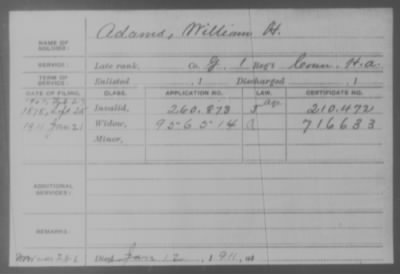 NAME OF SOLDIER: Adams, William H.
SERVICE: Late rank, Co. G. 1 Reg't Conn. H. a.
TERM OF SERVICE: Enlisted , 1 Discharged , 1
DATE OF FILING. CLASS. APPLICATION NO. LAW. CERTIFICATE NO.
1878, Sept 25 Invalid, 260.873 Age. 210.472
1911 Jan 21 Widow, 956514 716633
Minor,
ADDITIONAL SERVICES:
REMARKS:
Died Jan 12, 1911, at